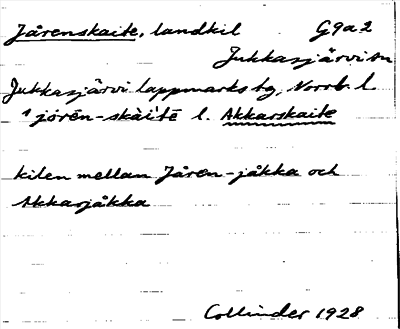 Jårenskaite, landkil G9a2
Jukkasjärvi sn
Jukkasjärvi lappmarks tg, Norrb. l.
1 jórēn-skài'tē l. Akkarskaite
kilen mellan Jåren-jåkka och
Akkarjåkka
Collinder 1928